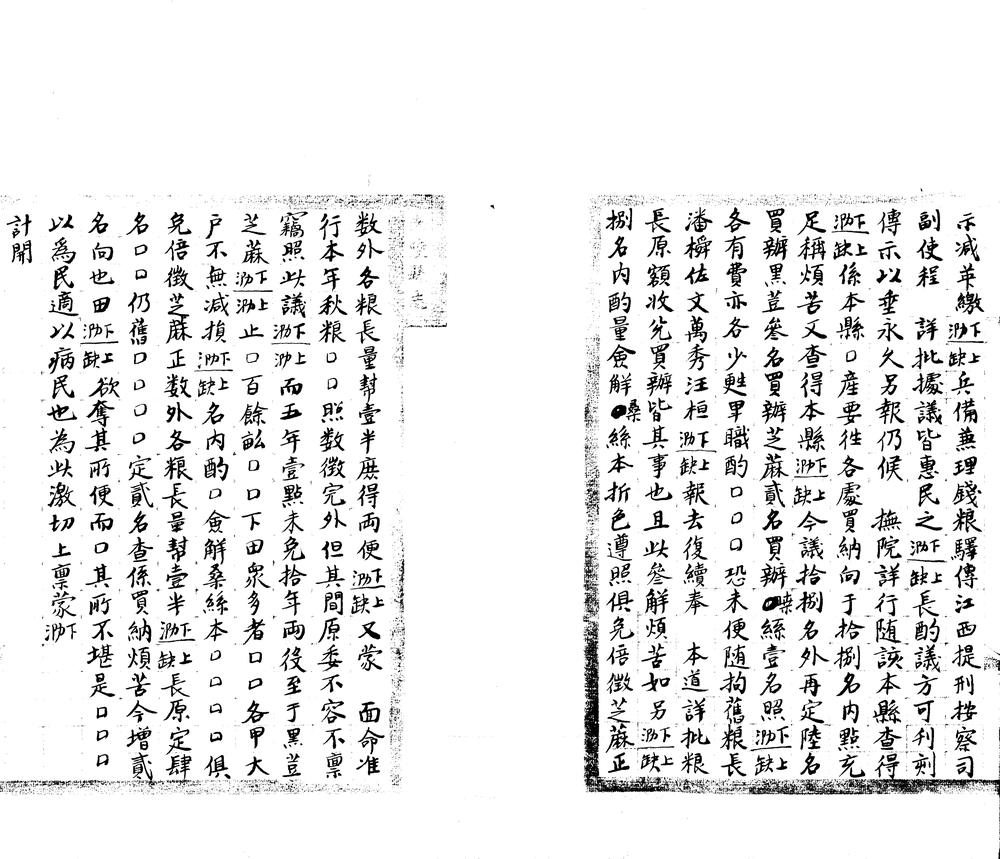 示減革繳泐下缺上兵備兼理錢粮驛傳江西提刑按察司
副使程　詳批據議皆惠民之泐下缺上長酌議方可刊刻
傳示以垂永久另報仍候　撫院詳行随該本縣查得
泐下缺上係本縣口産要徃各處買納向于拾捌名内點充
足稱煩苦又查得本縣泐下缺上今議拾捌名外再定陸名
買辦黑荳叄名買辦芝蔴貳名買辦桑絲壹名照泐下缺上
各有費亦各少甦卑職酌口口口恐未便随拘舊粮長
潘檸佐文萬秀汪桓泐下缺上報去復續奉　本道詳批粮
長原額收兊買辦皆其事也且此叄解煩苦如另泐下缺上
捌名内酌量僉解桑絲本折色遵照俱免倍徵芝蔴正
数外各粮長量幇壹半庻得両便泐下缺上又蒙　面命准
行本年秋粮口口照数徵完外但其間原委不容不禀
竊照此議泐下泐上而五年壹點未免拾年両役至于黑荳
芝蔴泐下泐上止口百餘畝口口下田衆多者口口各甲大
戸不無减損泐下缺上名内酌口僉解桑絲本口口口口俱
免倍徵芝蔴正数外各粮長量幇壹半泐下缺上長原定肆
名口口仍舊口口口口定貳名查係買納煩苦今增貳
名向也田泐下缺上欲奪其所便而口其所不堪是口口口
以爲民適以病民也為此激切上禀蒙泐下
計開